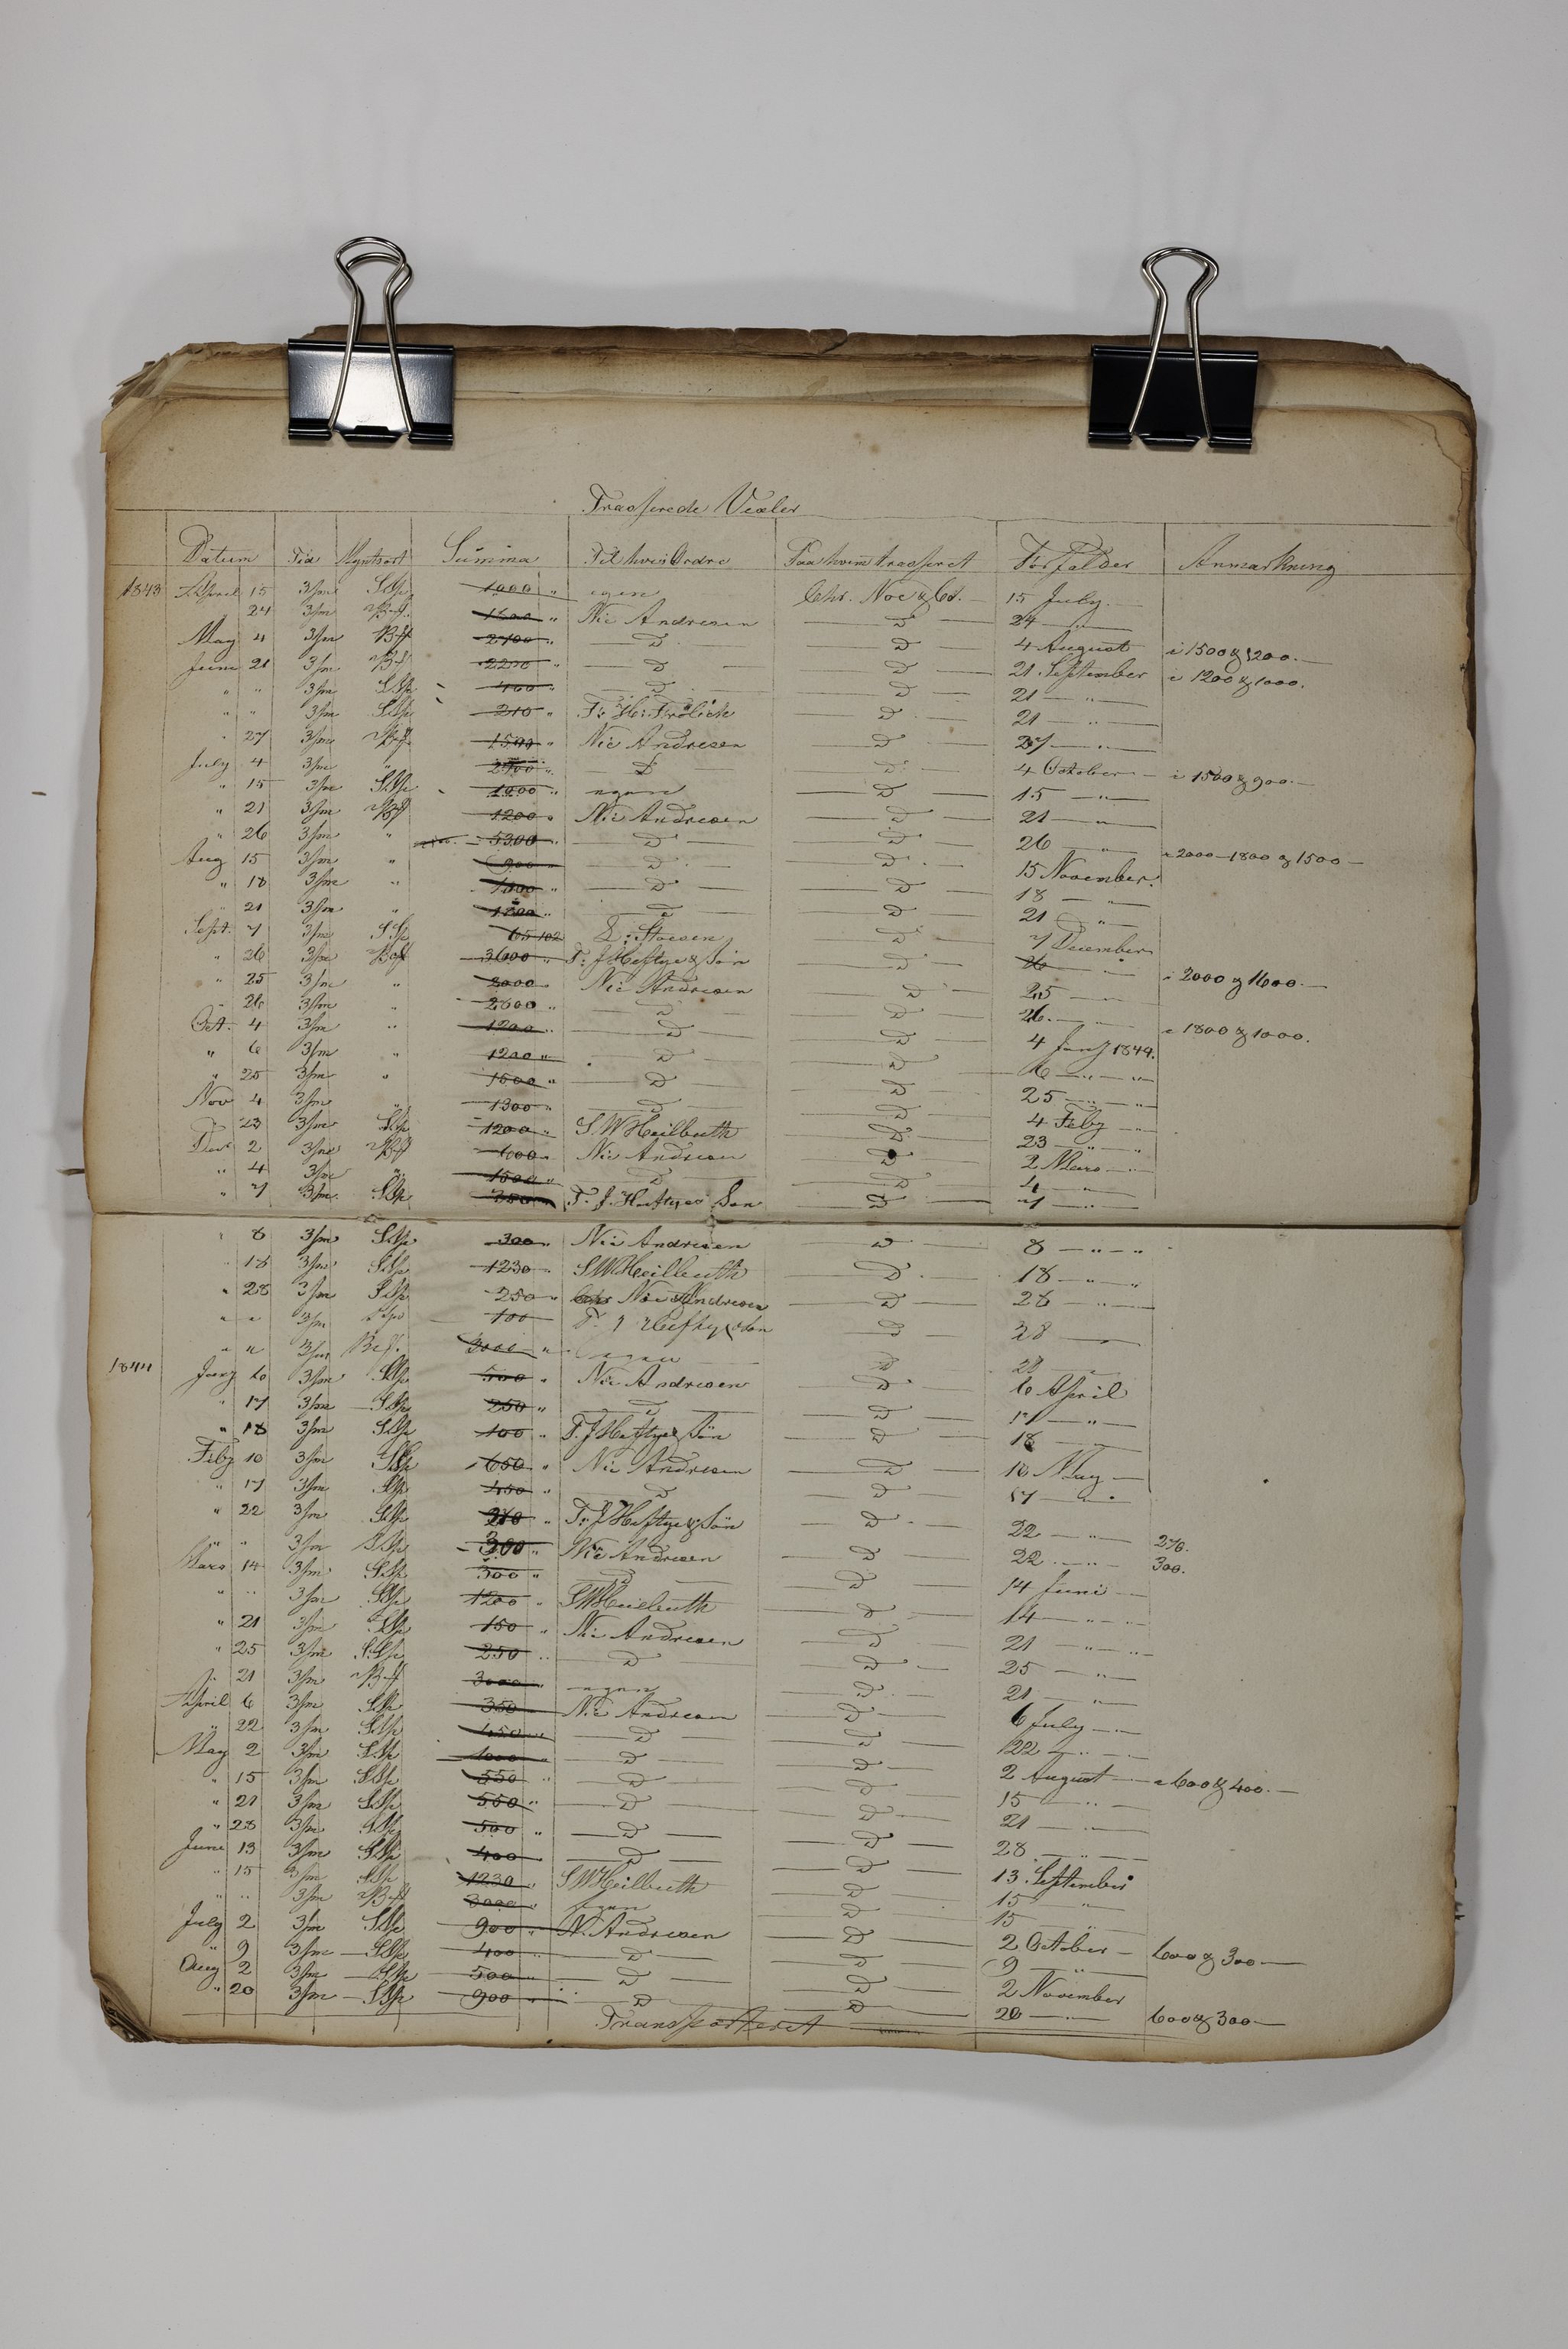 Trasserede Vexler
Datum Tid Myntsort Summa Til hvis Ordre Paa hvem trasseret Forfalder Anmærkning
1843 April 15 3/m SSp 1000 " egen Chr. Noe & Co. 15 July
" 24 3/m Bf 1800 " Nic Andresen D 24 "
May 4 3/m Bf 2700 " D D 4 August i 1500 & 1200.
Juni 21 3/m Bf 2200 " D D 21 September i 1200 & 1000.
" " 3/m SSp 400 " D D 21 "
" " 3/m SSp 210 " F: H: Frölich D 21 "
" 27 3/m Bf 1500 " Nic Andresen D 27 "
July 4 3/m " 2400 " D D 4 October i 1500 & 900.
" 15 3/m SSp 1000 " egen D 15 "
" 21 3/m Bf 1200 " Nic Andresen D 21 "
" 26 3/m " 5300 " D D 26 " a 2000 1800 & 1500
Aug 15 3/m " 900 " D D 15 November
" 18 3/m " 1300 " D D 18 "
" 21 3/m " 1200 " D D 21 "
Sept. 7 3/m SSp 65 102 D 7 December
" 26 3/m Bf 3600 " T: J Heftye & Søn D 26 " i 2000 & 1600.
" 25 3/m " 2000 " Nic Andresen D 25 "
" 26 3/m " 2800 " D D 26 " a 1800 & 1000.
Oct. 4 3/m " 1200 " D D 4 Jany 1844.
" 6 3/m " 1200 " D D 6 " "
" 25 3/m " 1500 " D D 25 " "
Nov 4 3/m " 1300 " D D 4 Feby "
" 23 3/m SSp 1200 " S. W Heilbuth D 23 " "
Decr 2 3/m Bf 600 " Nic Andresen D 2 Mars "
" 4 3/m " 1500 " D D 4 "
" 7 3/m SSp T. J. Heftye & Søn D 7 "
" 8 3/m SSp 300 " Nic Andresen D 8 " "
" 18 3/m SSp 1230 " S W Heilbuth D 18 " "
" 28 3/m SSp 250 " Nic Andresen D 28 "
" " 3/m SSp 100 T. J Heftye & Søn D 28
" " 3/m Bf. 3000 " egen 28 "
1844 Jany 6 3/m SSp 500 " Nic Andresen D 6 April
" 17 3/m SSp 250 " D D 17 "
" 18 3/m SSp 100 " T. J Heftye & Søn D 18
Feby 10 3/m SSp 650 " Nic Andresen D 10 May
" 17 3/m SSp 450 " D D 17 "
" 22 3/m SSp 270 " T: J Heftye & Søn D 22 " 270.
" " 3/m SSp 300 " Nic Andresen D 22 " 300.
Mars 14 3/m SSp 300 " D D 14 Juni
" " 3/m SSp 1200 " S W Heilbuth D 14 " "
" 21 3/m SSp 150 " Nic Andresen D 21 " "
" 25 3/m SSp 250 " D D 25 "
" 21 3/m Bf 3000 " egen D 21 "
April 6 3/m SSp 350 Nic Andresen D 6 July "
" 22 3/m SSp 450 " D D 22 "
May 2 3/m SSp 1000 " D D 2 August a 600 & 400.
" 15 3/m SSp 550 " D D 15 "
" 21 3/m SSp 550 " D D 21 "
" 28 3/m SSp 500 " D D 28 "
Juni 13 3/m SSp 400 D D 13 September
" 15 3/m SSp 1230 " S W Heilbuth D 15 "
" " 3/m Bf 3000 " egen D 15 "
July 2 3/m SSp 900 " N. Andresen D 2 October 600 & 300
" 9 3/m SSp 400 " D D 9 "
Aug 2 3/m SSp 500 " D D 2 November
" 20 3/m SSp 900 " D D 20 " 600 & 300
Transporteret